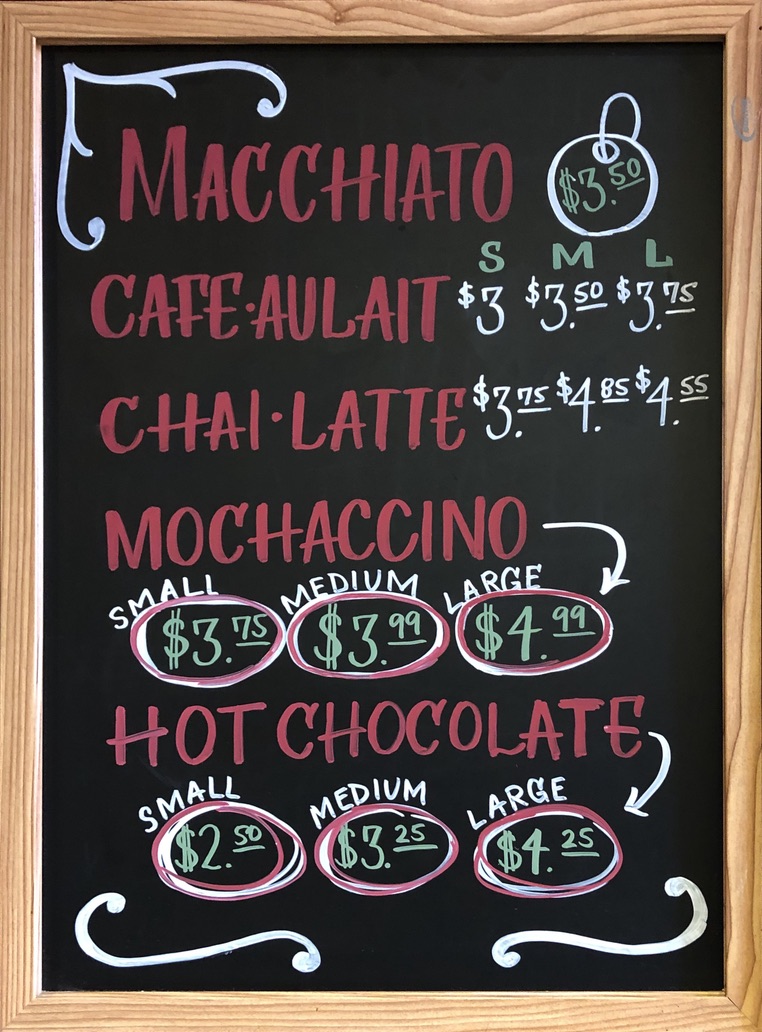 MACCHIATO $3.50
S M L
CAFE·AU LAIT $3 $3.50 $3.75
CHAI·LATTE $3.75 $4.85 $4.55
MOCHACCINO
SMALL MEDIUM LARGE
$3.75 $3.99 $4.99
HOT CHOCOLATE
SMALL MEDIUM LARGE
$2.50 $3.25 $4.25